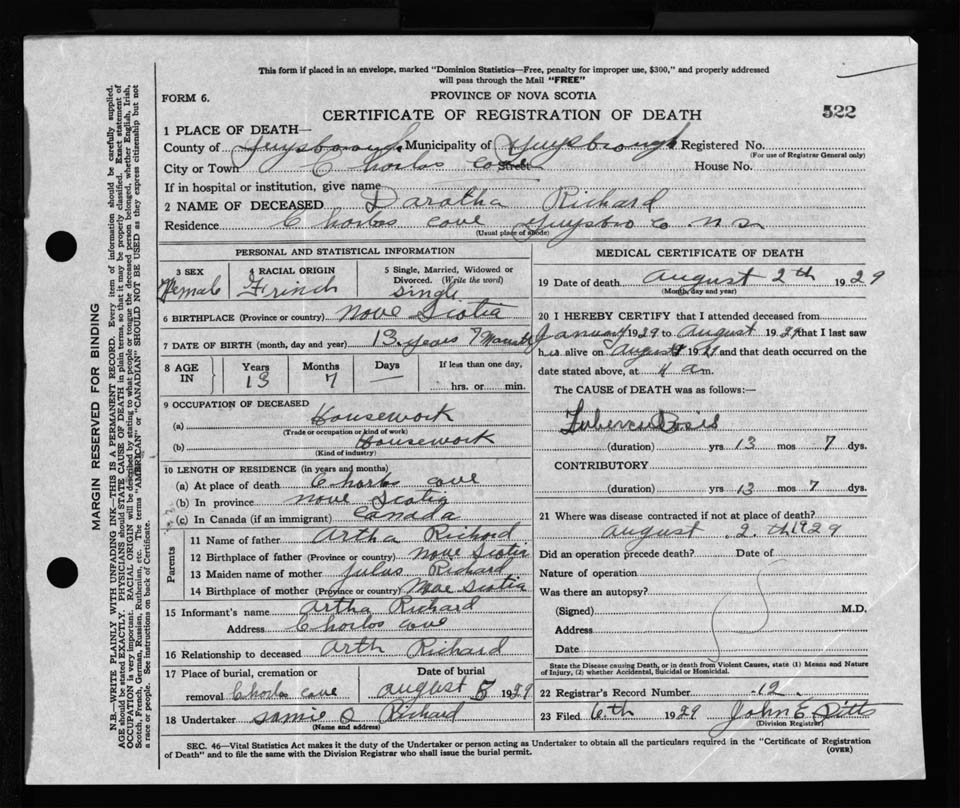 This form if placed in an envelope, marked "Dominion Statistics—Free, penalty for improper use, $300," and properly addressed
will pass through the Mail "FREE"
FORM 6.
PROVINCE OF NOVA SCOTIA
CERTIFICATE OF REGISTRATION OF DEATH
522
1 PLACE OF DEATH—
County of Guysborough Municipality of Guysbrough Registered No.
(For use of Registrar General only)
City or Town Chorlos Cove Street House No.
If in hospital or institution, give name
2 NAME OF DECEASED Daratha Richard
Residence Chorlos cove Guysboro Co N.S.
(Usual place of abode)
PERSONAL AND STATISTICAL INFORMATION
3 SEX
Female
4 RACIAL ORIGIN
Frinch
5 Single, Married, Widowed or
Divorced. (Write the word)
Single
6 BIRTHPLACE (Province or country) Nove Scotia
7 DATE OF BIRTH (month, day and year) 13 years 7 Months
8 AGE
IN
Years
13
Months
7
Days
—
If less than one day,
hrs. or min.
9 OCCUPATION OF DECEASED
(a) Housework
(Trade or occupation or kind of work)
(b) Housework
(Kind of industry)
10 LENGTH OF RESIDENCE (in years and months)
(a) At place of death Chorlos cove
(b) In province Nove Scotia
(c) In Canada (if an immigrant) Canada
Parents
11 Name of father Artha Richard
12 Birthplace of father (Province or country) Nove Scotia
13 Maiden name of mother Julus Richard
14 Birthplace of mother (Province or country) Scotia
15 Informant's name Artha Richard
Address Chorlos cove
16 Relationship to deceased Arth Richard
17 Place of burial, cremation or
removal Chorlos cove
Date of burial
August 1929
18 Undertaker Samie O Richard
(Name and address)
MEDICAL CERTIFICATE OF DEATH
19 Date of death August 2 th 1929
(Month, day and year)
20 I HEREBY CERTIFY that I attended deceased from
January 1929 to August 1929 that I last saw
h alive on August and that death occurred on the
date stated above, at m.
The CAUSE of DEATH was as follows:—
Tubercu
(duration) yrs 13 mos 7 dys.
CONTRIBUTORY
(duration) yrs 13 mos 7 dys.
21 Where was disease contracted if not at place of death?
August 2. th 1929
Did an operation precede death? Date of
Nature of operation
Was there an autopsy?
(Signed) M.D.
Address
Date
State the Disease causing Death, or in death from Violent Causes, state (1) Means and Nature
of Injury, (2) whether Accidental, Suicidal or Homicidal.
22 Registrar's Record Number 12.
23 Filed 6th 1929 John E Pitts
(Division Registrar)
SEC. 46—Vital Statistics Act makes it the duty of the Undertaker or person acting as Undertaker to obtain all the particulars required in the "Certificate of Registration
of Death" and to file the same with the Division Registrar who shall issue the burial permit.
(OVER)
MARGIN RESERVED FOR BINDING
N.B.—WRITE PLAINLY WITH UNFADING INK—THIS IS A PERMANENT RECORD. Every item of information should be carefully supplied.
AGE should be stated EXACTLY. PHYSICIANS should STATE CAUSE OF DEATH in plain terms, so that it may be properly classified. Exact statement of
OCCUPATION is very important. RACIAL ORIGIN will be described by stating to what people or tongue the deceased person belonged, whether English, Irish,
Scotch, French, German, Russian, Ruthenian, etc. The terms "AMERICAN" or "CANADIAN" SHOULD NOT BE USED as they express citizenship but not
a race or people. See instructions on back of Certificate.